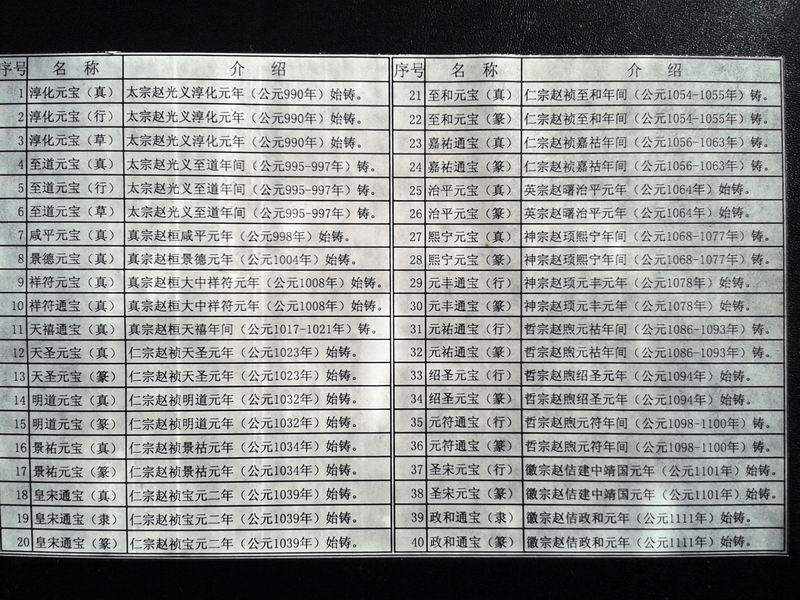 序号 名 称 介 绍
1 淳化元宝（真） 太宗赵光义淳化元年（公元990年）始铸。
2 淳化元宝（行） 太宗赵光义淳化元年（公元990年）始铸。
3 淳化元宝（草） 太宗赵光义淳化元年（公元990年）始铸。
4 至道元宝（真） 太宗赵光义至道年间（公元995-997年）铸。
5 至道元宝（行） 太宗赵光义至道年间（公元995-997年）铸。
6 至道元宝（草） 太宗赵光义至道年间（公元995-997年）铸。
7 咸平元宝（真） 真宗赵桓咸平元年（公元998年）始铸。
8 景德元宝（真） 真宗赵桓景德元年（公元1004年）始铸。
9 祥符元宝（真） 真宗赵桓大中祥符元年（公元1008年）始铸。
10 祥符通宝（真） 真宗赵桓大中祥符元年（公元1008年）始铸。
11 天禧通宝（真） 真宗赵桓天禧年间（公元1017-1021年）铸。
12 天圣元宝（真） 仁宗赵祯天圣元年（公元1023年）始铸。
13 天圣元宝（篆） 仁宗赵祯天圣元年（公元1023年）始铸。
14 明道元宝（真） 仁宗赵祯明道元年（公元1032年）始铸。
15 明道元宝（篆） 仁宗赵祯明道元年（公元1032年）始铸。
16 景祐元宝（真） 仁宗赵祯景祜元年（公元1034年）始铸。
17 景祐元宝（篆） 仁宗赵祯景祜元年（公元1034年）始铸。
18 皇宋通宝（真） 仁宗赵祯宝元二年（公元1039年）始铸。
19 皇宋通宝（隶） 仁宗赵祯宝元二年（公元1039年）始铸。
20 皇宋通宝（篆） 仁宗赵祯宝元二年（公元1039年）始铸。
序号 名 称 介 绍
21 至和元宝（真） 仁宗赵祯至和年间（公元1054-1055年）铸。
22 至和元宝（篆） 仁宗赵祯至和年间（公元1054-1055年）铸。
23 嘉祐通宝（真） 仁宗赵祯嘉祜年间（公元1056-1063年）铸。
24 嘉祐通宝（篆） 仁宗赵祯嘉祜年间（公元1056-1063年）铸。
25 治平元宝（真） 英宗赵曙治平元年（公元1064年）始铸。
26 治平元宝（篆） 英宗赵曙治平元年（公元1064年）始铸。
27 熙宁元宝（真） 神宗赵顼熙宁年间（公元1068-1077年）铸。
28 熙宁元宝（篆） 神宗赵顼熙宁年间（公元1068-1077年）铸。
29 元丰通宝（行） 神宗赵顼元丰元年（公元1078年）始铸。
30 元丰通宝（篆） 神宗赵顼元丰元年（公元1078年）始铸。
31 元祐通宝（行） 哲宗赵煦元祜年间（公元1086-1093年）铸。
32 元祐通宝（篆） 哲宗赵煦元祜年间（公元1086-1093年）铸。
33 绍圣元宝（行） 哲宗赵煦绍圣元年（公元1094年）始铸。
34 绍圣元宝（篆） 哲宗赵煦绍圣元年（公元1094年）始铸。
35 元符通宝（行） 哲宗赵煦元符年间（公元1098-1100年）铸。
36 元符通宝（篆） 哲宗赵煦元符年间（公元1098-1100年）铸。
37 圣宋元宝（行） 徽宗赵佶建中靖国元年（公元1101年）始铸。
38 圣宋元宝（篆） 徽宗赵佶建中靖国元年（公元1101年）始铸。
39 政和通宝（隶） 徽宗赵佶政和元年（公元1111年）始铸。
40 政和通宝（篆） 徽宗赵佶政和元年（公元1111年）始铸。